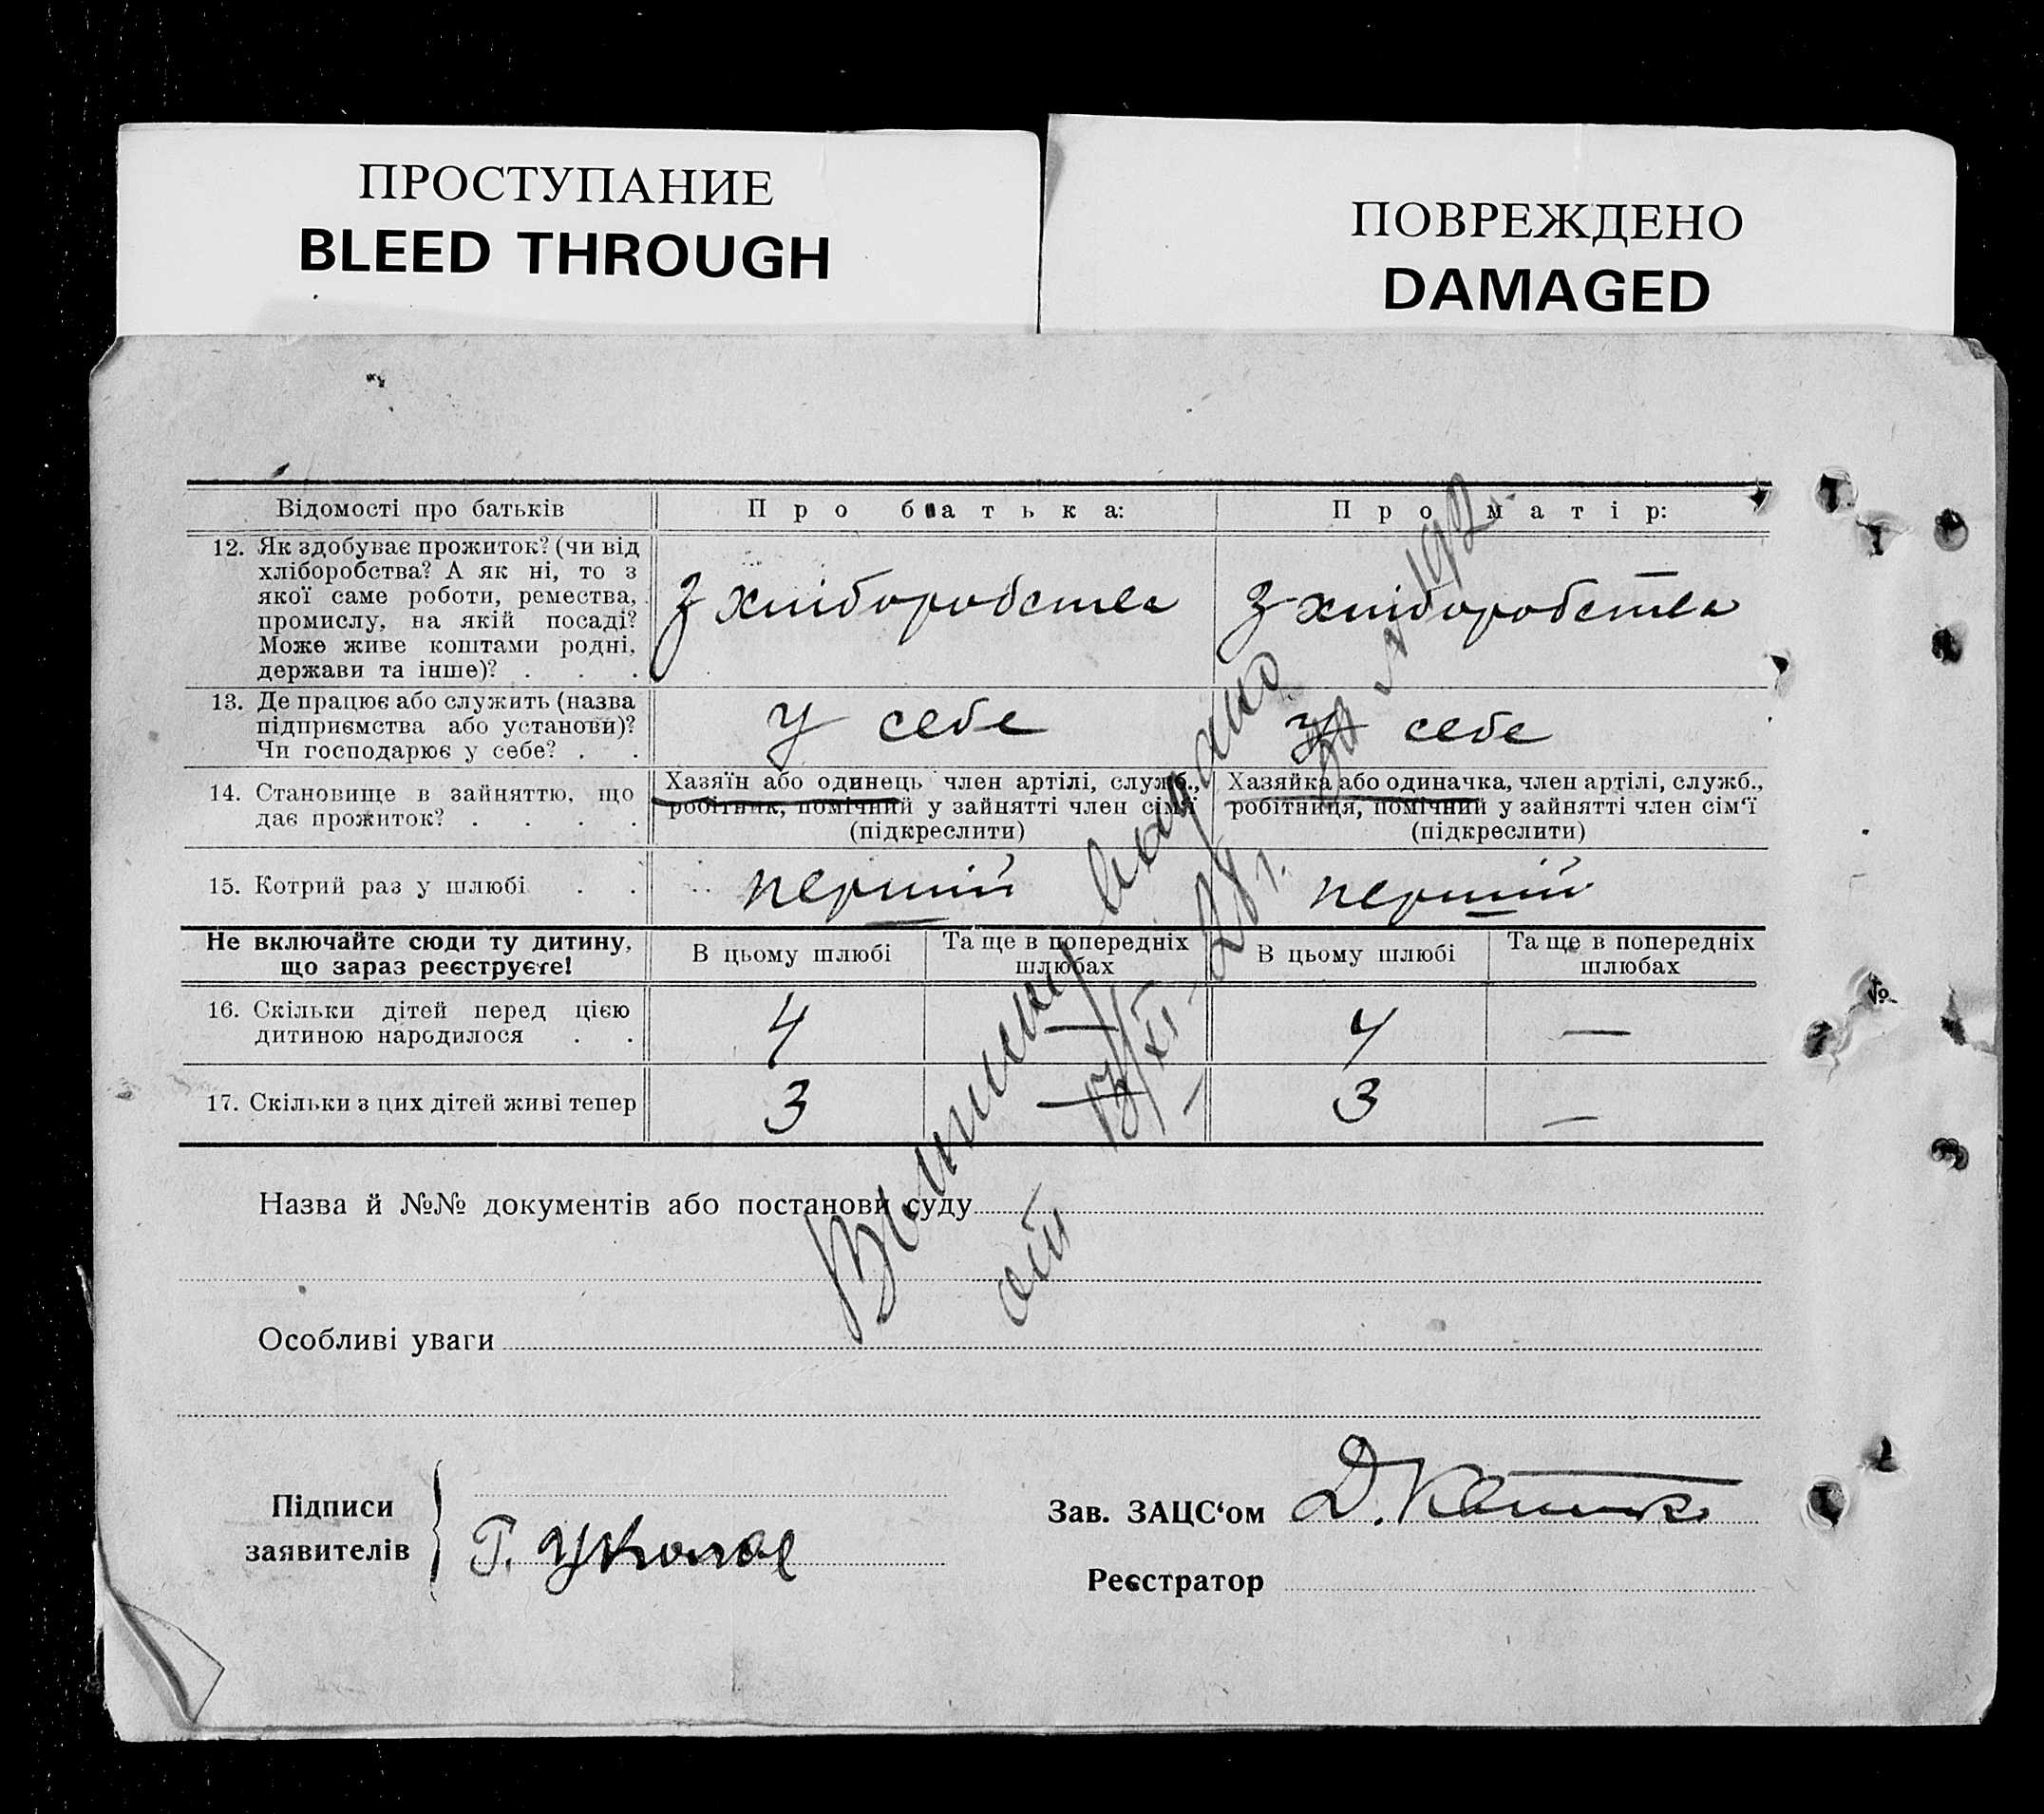 ПРОСТУПАНИЕ
BLEED THROUGH
ПОВРЕЖДЕНО
DAMAGED
Відомості про батьків
Про батька:
Про матір:
12. Як здобуває прожиток? (чи від
хліборобства? А як ні, то з
якої саме роботи, ремества,
промислу, на якій посаді?
Може живе коштами родні,
держави та інше)? . . .
З хліборобства
З хліборобства
13. Де працює або служить (назва
підприємства або установи)?
Чи господарює у себе? . .
У себе
У себе
14. Становище в зайняттю, що
дає прожиток? . . . .
Хазяїн або одинець член артілі, служб.,
робітник, помічний у зайнятті член сім'ї
(підкреслити)
Хазяйка або одиначка, член артілі, служб.,
робітниця, помічний у зайнятті член сім'ї
(підкреслити)
15. Котрий раз у шлюбі . .
перший
перший
Не включайте сюди ту дитину,
що зараз реєструєте!
В цьому шлюбі
Та ще в попередніх
шлюбах
В цьому шлюбі
Та ще в попередніх
шлюбах
16. Скільки дітей перед цією
дитиною народилося . .
4
—
4
—
17. Скільки з цих дітей живі тепер
3
—
3
—
Выписку выдано
за № 192
от 13/XI-28 г.
Назва й №№ документів або постанови суду
Особливі уваги
Підписи
заявителів
Г.
Зав. ЗАЦС‘ом
Д.
Реєстратор
№